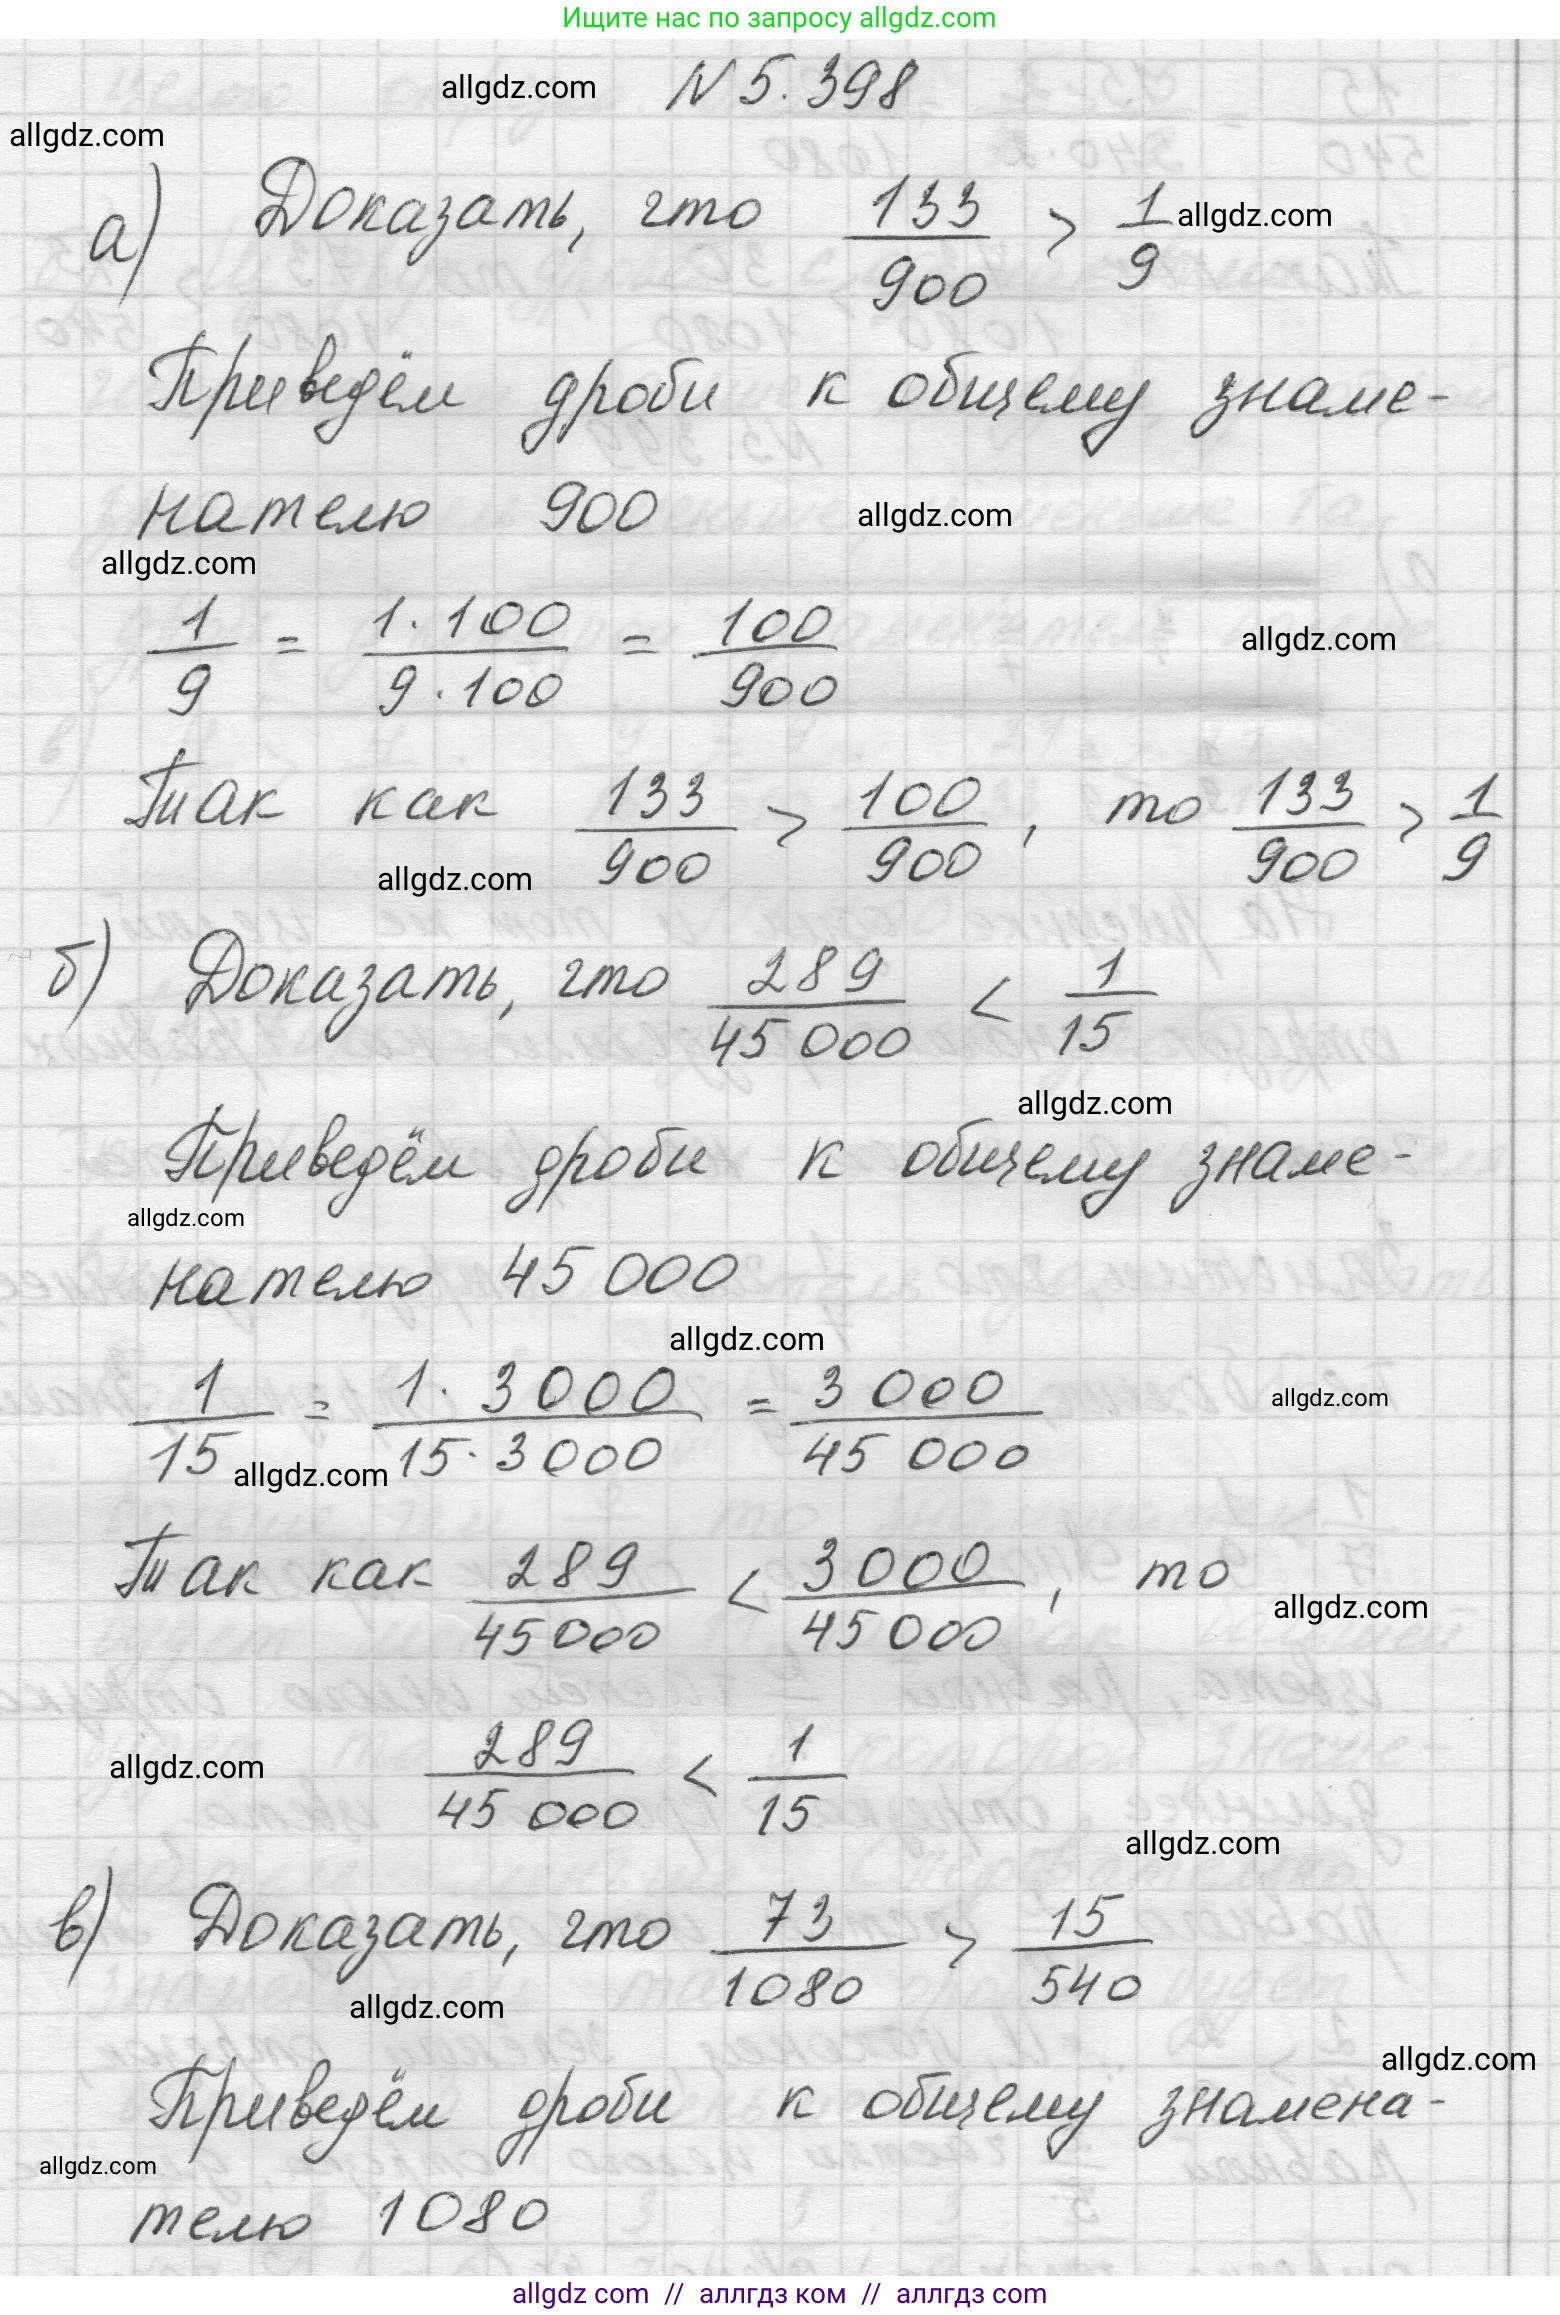 Ищите нас по запросу allgdz.com
allgdz.com N 5.398
allgdz.com
а) Доказать, что 133/900 > 1/9 allgdz.com
Приведём дроби к общему знаме-
нателю 900 allgdz.com
allgdz.com
1/9 = 1·100/9·100 = 100/900 allgdz.com
Так как 133/900 > 100/900, то 133/900 > 1/9
allgdz.com
б) Доказать, что 289/45000 < 1/15
allgdz.com
Приведём дроби к общему знаме-
allgdz.com
нателю 45000
allgdz.com
1/15 = 1·3000/15·3000 = 3000/45000 allgdz.com
allgdz.com
Так как 289/45000 < 3000/45000, то
allgdz.com
allgdz.com 289/45000 < 1/15
allgdz.com
в) Доказать, что 73/1080 > 15/540
allgdz.com
allgdz.com
Приведём дроби к общему знамена-
allgdz.com
телю 1080
allgdz com // аллгдз ком // аллгдз com